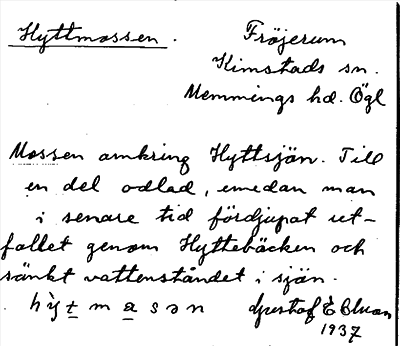 Hyttmossen.
Fröjerum
Kimstads sn.
Memmings hd. Ögl
Mossen omkring Hyttsjön. Till
en del odlad, emedan man
i senare tid fördjupat ut-
fallet genom Hyttebäcken och
sänkt vattenståndet i sjön.
Gustaf E
1937